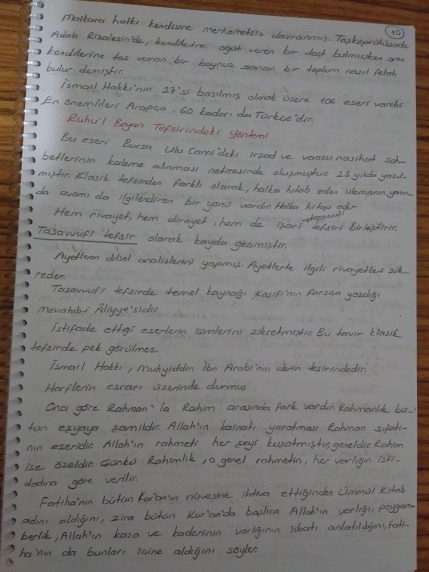 10
Malkara halkı kendisine merhametsiz davranmış. Taşköprülüzade
Adab Risalesin'de, kendilerine öğüt veren bir dost bulmuşken onu
kendilerine taş vuran bir boynuz sanan bir toplum nasıl felah
bulur demiştir.
İsmail Hakkı'nın 27'si basılmış olmak üzere 106 eseri vardır.
En önemlileri Arapça. 60 kadarı da Türkçe'dir.
Ruhu'l Beyan Tefsirindeki Yöntemi
Bu eseri Bursa Ulu Cami'deki irşad ve vaazu nasihat soh-
betlerinin kaleme alınması neticesinde oluşmuştur. 23 yılda yazıl-
mıştır. Klasik tefsirden farklı olarak, halka hitab eden ulemanın yanın-
da avamı da ilgilendiren bir yönü vardır. Halka hitap eder
Hem rivayet, hem dirayet, hem de işari tefsiri birleştirir.
Tasavvufi tefsir olarak kayda geçmiştir.
Ayetlerin dilsel analizlerini yapmış. Ayetlerle ilgili rivayetleri zik-
reder.
Tasavvufi tefsirde temel kaynağı Kaşifi'nin farsça yazdığı
Mevahibi Aliyye'sidir.
İstifade ettiği eserlerin isimlerini zikretmiştir. Bu tavır klasik
tefsirde pek görülmez.
İsmail Hakkı, Muhyiddin İbn Arabi'nin derin tesirindedir.
Harflerin esrarı üzerinde durmuş.
Ona göre Rahman'la Rahim arasında fark vardır. Rahmanlık bü-
tün eşyaya şamildir. Allah'ın kainatı yaratması Rahman sıfatı-
nın eseridir. Allah'ın rahmeti her şeyi kuşatmıştır, geneldir. Rahim
ise özeldir. Çünkü Rahimlik, o genel rahmetin, her varlığın isti-
dadına göre verilir.
Fatiha'nın bütün Kur'an'ın nüvesine ihtiva ettiğinden Ümmül Kitab
adını aldığını, zira bütün Kur'an'da başlıca Allah'ın varlığı, peygam-
berlik, Allah'ın kaza ve kaderinin varlığının isbatı anlatıldığını, Fati-
ha'nın da bunları içine aldığını söyler.